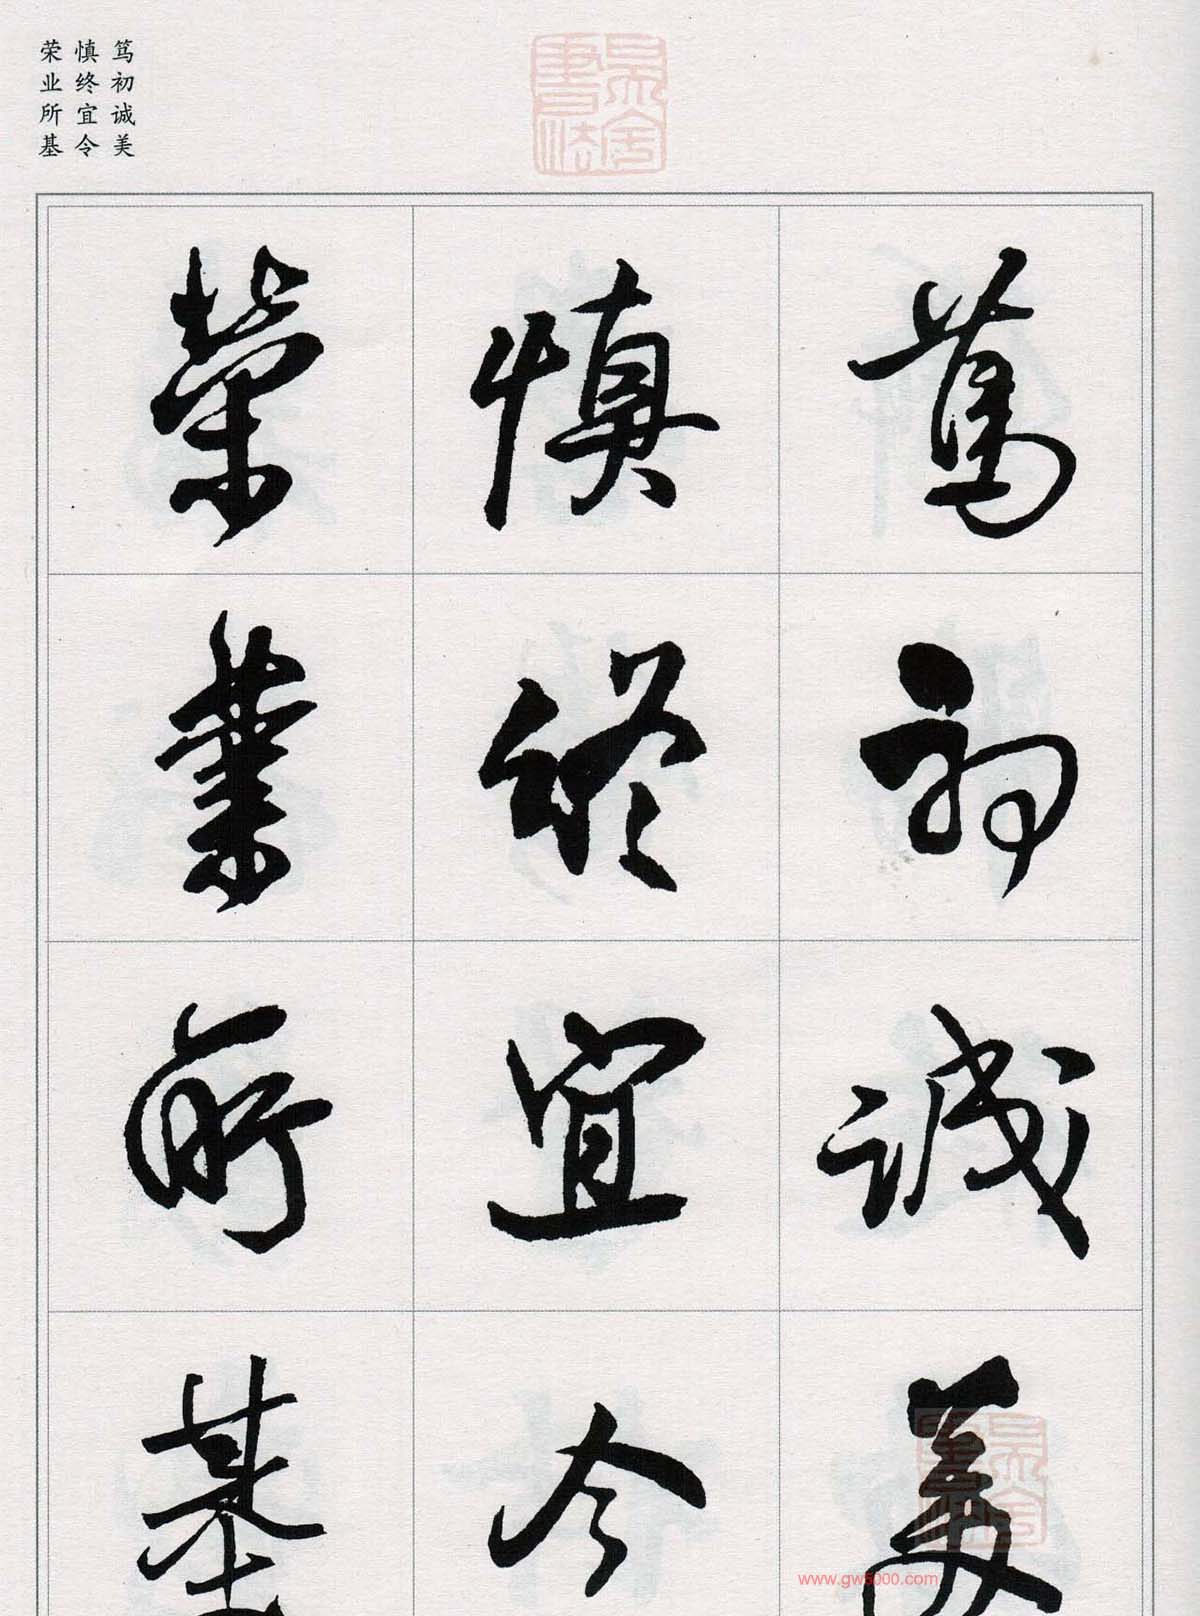 笃初诚美
慎终宜令
荣业所基
篤初誠美
慎終宜令
榮業所基
www.gw5000.com